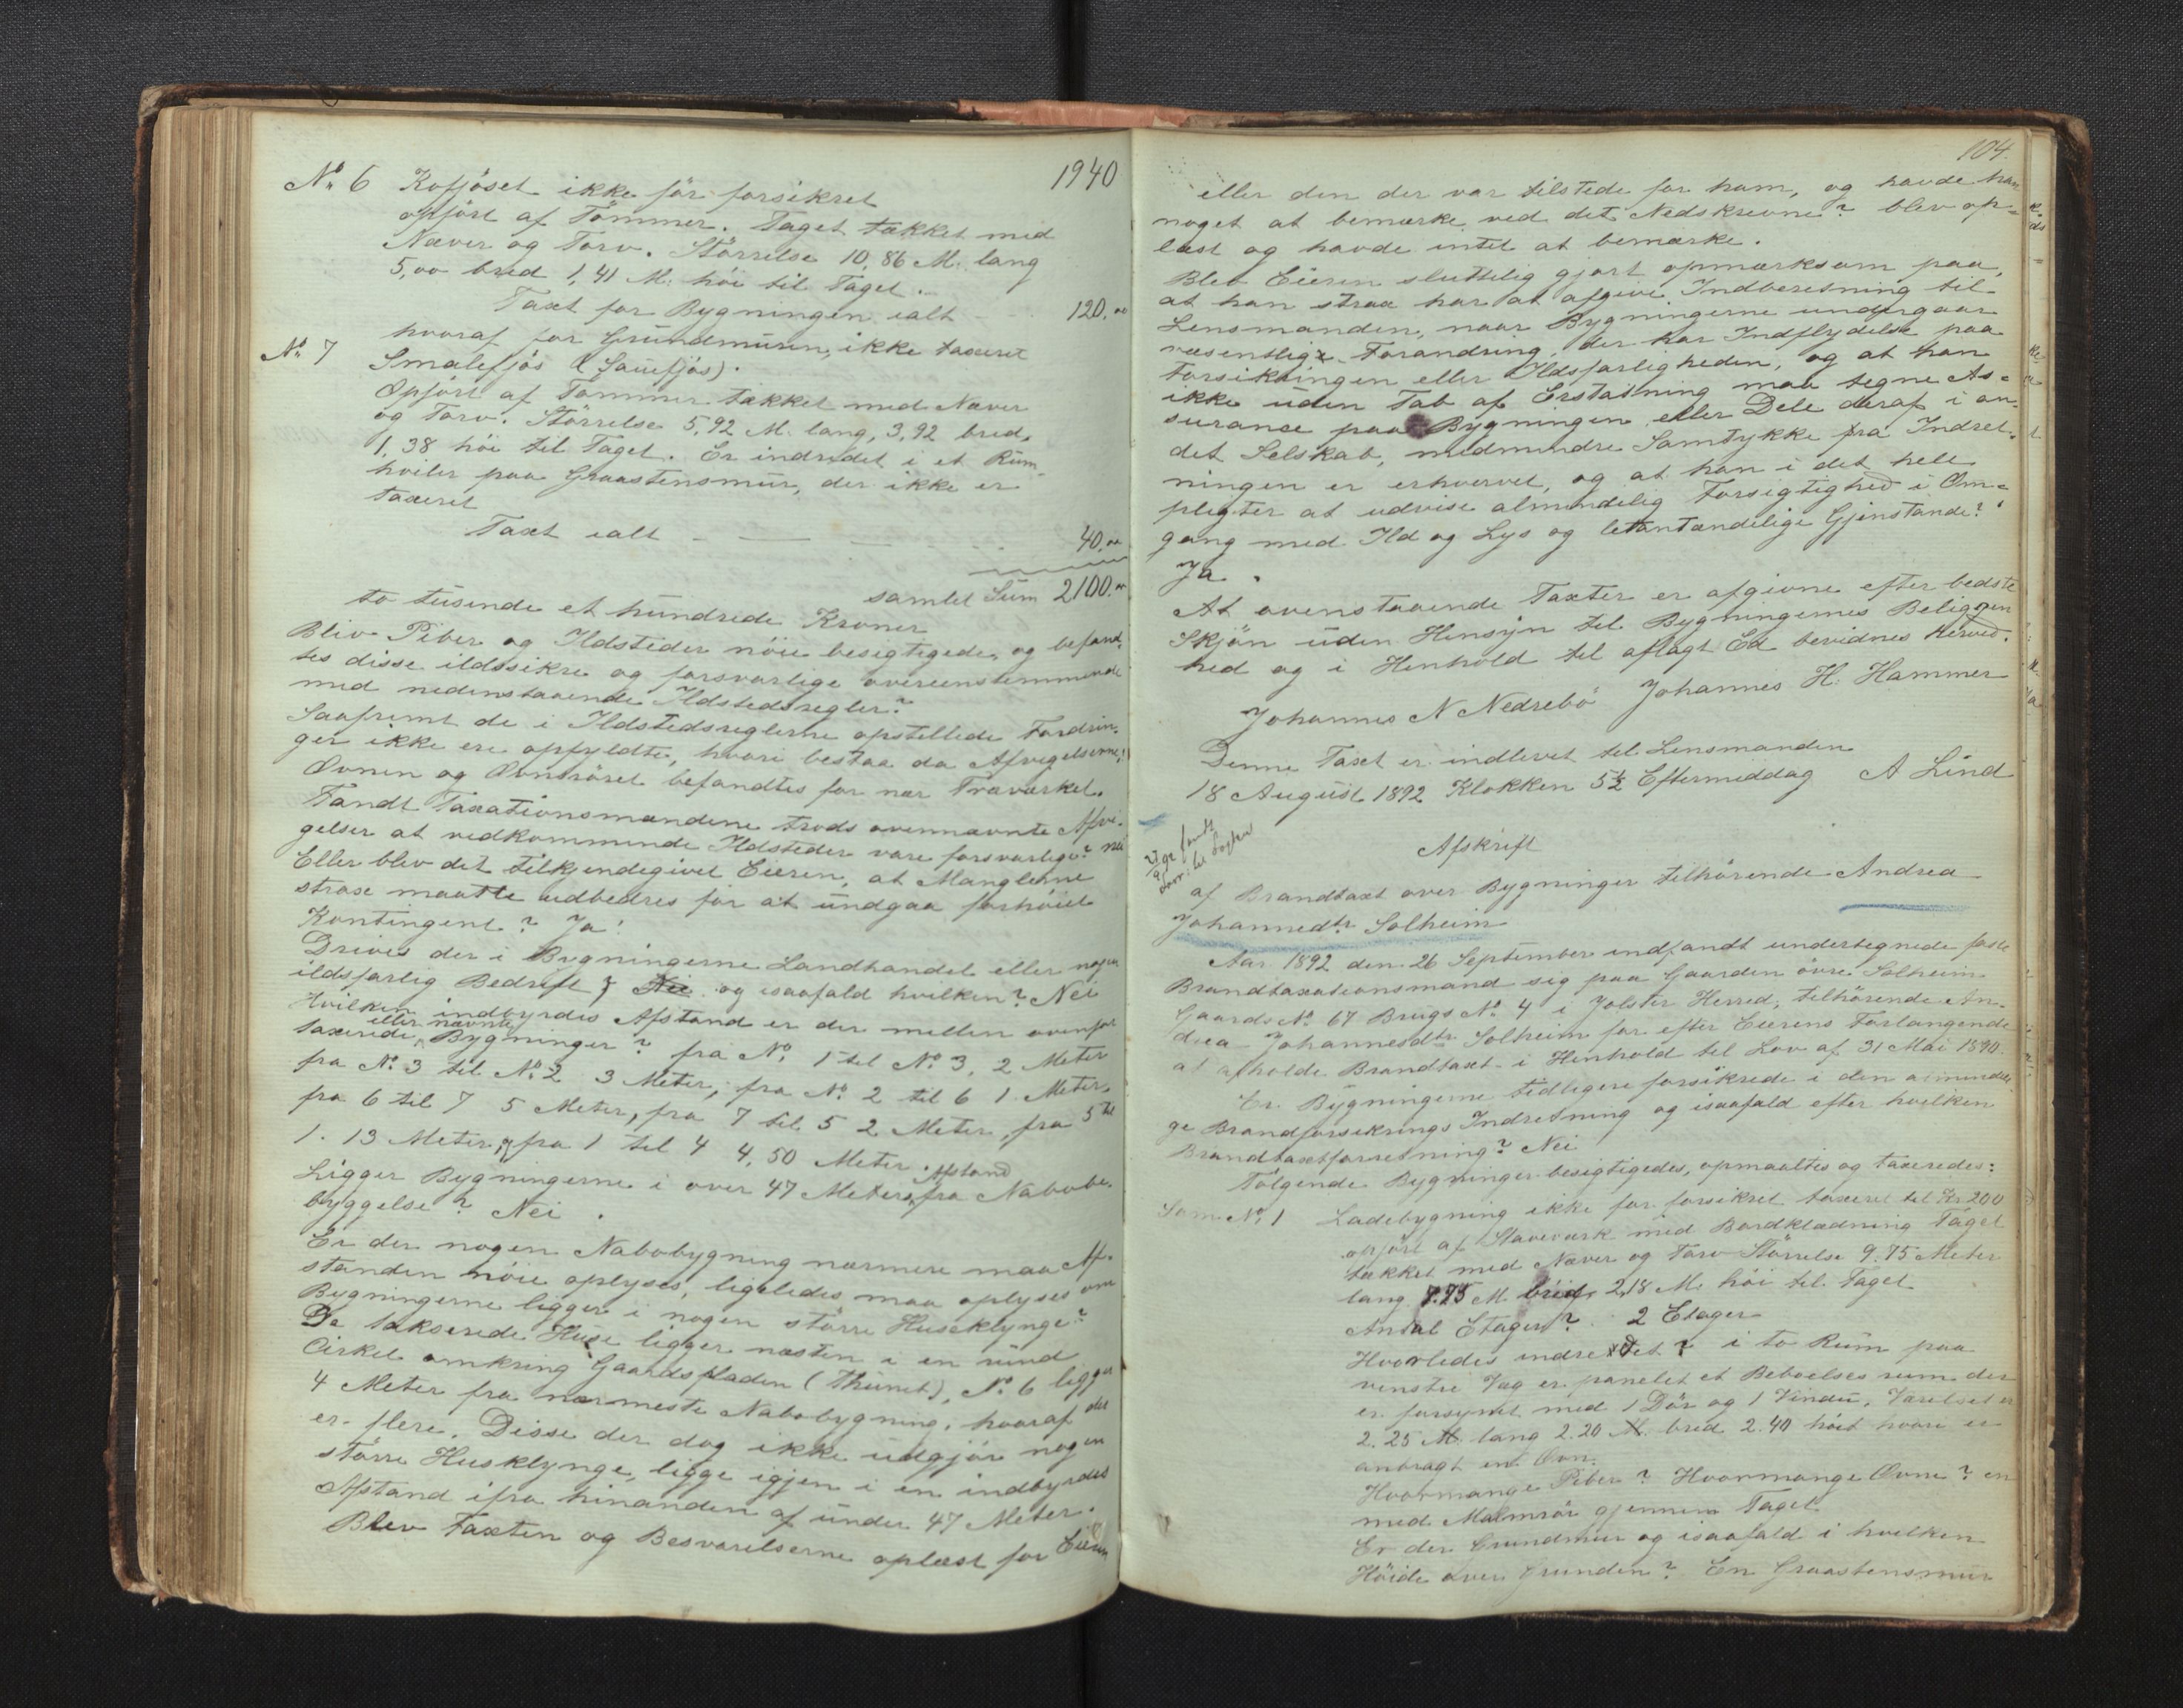 1940
No 6 Kofjöset ikke för forsikret
opfört af Tömmer. Taget tækket med
Næver og Torv. Störrelse 10,86 M. lang
5,00 bred 1,41 M. höi til Taget.
Taxt for Bygningen ialt - 120.00
hvoraf for Grundmuren, ikke taxeret
No 7 Smalefjös (Sauefjös).
Opfört af Tömmer tækket med Næver
og Torv. Störrelse 5,92 M. lang, 3,92 bred,
1,38 höi til Taget. Er indredet i et Rum
hviler paa Graastensmur, der ikke er
taxeret
Taxt ialt - - 40.00
samlet Sum 2100.00
to tusende et hundrede Kroner
Blev Piber og Ildsteder nöie besigtigede, og befand-
tes disse ildssikre og forsvarlige overeenstemmende
med nedenstaaende Ildstedsregler?
Saafremt de i Ildstedsreglerne opstillede Fordrin-
ger ikke ere opfyldte, hvori bestaa da Afvigelserne?
Ovnen og Ovnsröret befandtes for nær Træværket.
Fandt Taxationsmændene trods ovennævnte Afvi-
gelser at vedkommende Ildsteder vare forsvarlige? nei
Eller blev det tilkjendegivet Eieren, at Manglerne
strax maatte udbedres for at undgaa forhöiet
Kontingent? Ja!
Drives der i Bygningerne Landhandel eller nogen
ildsfarlig Bedrift, Nei og isaafald hvilken? Nei
Hvilken indbyrdes Afstand er der mellem ovenfor
eller nævnte
taxerede Bygninger? fra No 1 til No 3, 2 Meter
fra No 3 til No 2 3 Meter, fra No 2 til 6 1 Meter,
fra 6 til 7 5 Meter, fra 7 til 5 2 Meter, fra 5 til
1. 13 Meter, og fra 1 til 4 4,50 Meter.
Afstand
Ligger Bygningerne i over 47 Meters fra Nabobe-
byggelse? Nei.
Er der nogen Nabobygning nærmere maa Af-
standen nöie oplyses, ligeledes maa oplyses om
Bygningerne ligger i nogen större Huseklynge?
De takserede Huse ligger næsten i en rund
Cirkel omkring Gaardspladsen (Thunet), No 6 ligger
4 Meter fra nærmeste Nabobygning, hvoraf der
er flere. Disse der dog ikke udgjör nogen
större Husklynge, ligge igjen i en indbyrdes
Afstand ifra hinanden af under 47 Meter.
Blev Taxten og Besvarelserne oplæst for Eieren
104.
eller den der var tilstede for ham, og havde han
noget at bemærke ved det Nedskrevne? blev op-
læst og havde intet at bemærke.
Blev Eieren sluttelig gjort opmærksom paa,
at han strax har at afgive Indberetning til
Lensmanden, naar Bygningerne undergaar
væsentlige Forandring, der har Indflydelse paa
Forsikringen eller Ildsfarligheden, og at han
ikke uden Tab af Erstatning maa tegne As-
surance paa Bygningen eller Dele deraf i an-
det Selskab, medmindre Samtykke fra Indret-
ningen er erhvervet, og at han i det hele
pligter at udvise almindelig Forsigtighed i Om-
gang med Ild og Lys og letantændelige Gjenstande?
Ja.
At ovenstaaende Taxter er afgivne efter bedste
Skjön uden Hensyn til Bygningernes Beliggen
hed og i Henhold til aflagt Ed bevidnes herved.
Johannes N Nedrebö Johannes H. Hammer
Denne Taxt er indlevet til Lensmanden
18 August 1892 Klokken 5½ Eftermiddag A Lind
Afskrift
af Brandtaxt over Bygninger tilhörende Andrea
Johannesdtr Solheim
Aar 1892 den 26 September indfandt undertegnede faste
Brandtaxationsmænd sig paa Gaarden övre Solheim
Gaards No 67 Brugs No 4 i Jolster Herred, tilhörende An-
drea Johannesdtr Solheim for efter Eierens Forlangende
at afholde Brandtaxt i Henhold til Lov af 31 Mai 1890.
Er Bygningerne tidligere forsikrede i den almindeli
ge Brandforsikrings Indretning og isaafald efter hvilken
Brandtaxtforretning? Nei
Fölgende Bygninger besigtigedes, opmaaltes og taxeredes:
Som No 1 Ladebygning ikke för forsikret taxeret til Kr 200
opfört af Staveværk med Bordklædning Taget
tækket med Næver og Torv Störrelse 9.75 Meter
lang 7.75 M. bred 2,18 M. höi til Taget
Antal Etager? 2 Etager
Hvorledes indredet? i to Rum paa
venstre Væg er panelet et Beboelses rum der
er forsynet med 1 Dör og 1 Vindu, Værelset er
2.25 M. lang 2.20 M. bred 2.40 höit hvori er
anbragt en Ovn.
Hvormange Piber? Hvormange Ovne? en
med Malmrör gjennem Taget
Er der Grundmur og isaafald i hvilken
Höide over Grunden? En Graastensmur